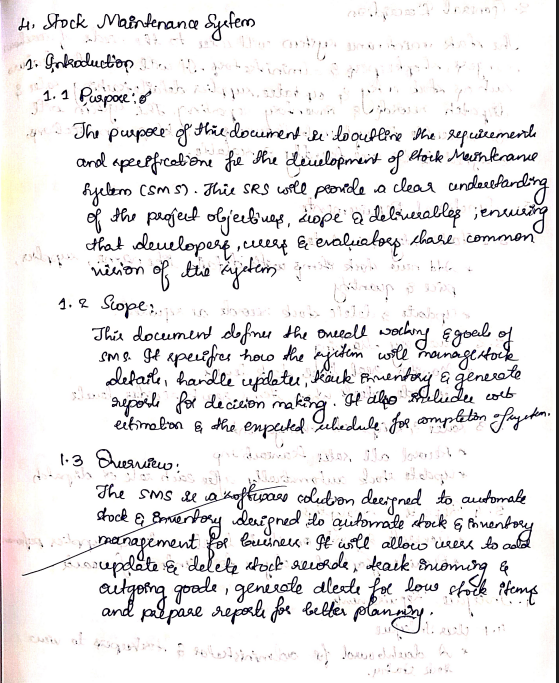 4. Stock Maintenance System
1. Introduction
1.1 Purpose:
The purpose of this document is to outline the requirements
and specifications for the development of Stock Maintenance
System (SMS). This SRS will provide a clear understanding
of the project objectives, scope & deliverables, ensuring
that developers, users & evaluators share common
vision of the system
1.2 Scope:
This document defines the overall working & goals of
SMS. It specifies how the system will manage stock
details, handle updates, track inventory & generate
reports for decision making. It also includes cost
estimation & the expected schedule for completion of system.
1.3 Overview:
The SMS is a software solution designed to automate
stock & inventory designed to automate stock & inventory
management for business. It will allow users to add
update & delete stock records, track incoming &
outgoing goods, generate alerts for low stock items
and prepare reports for better planning.